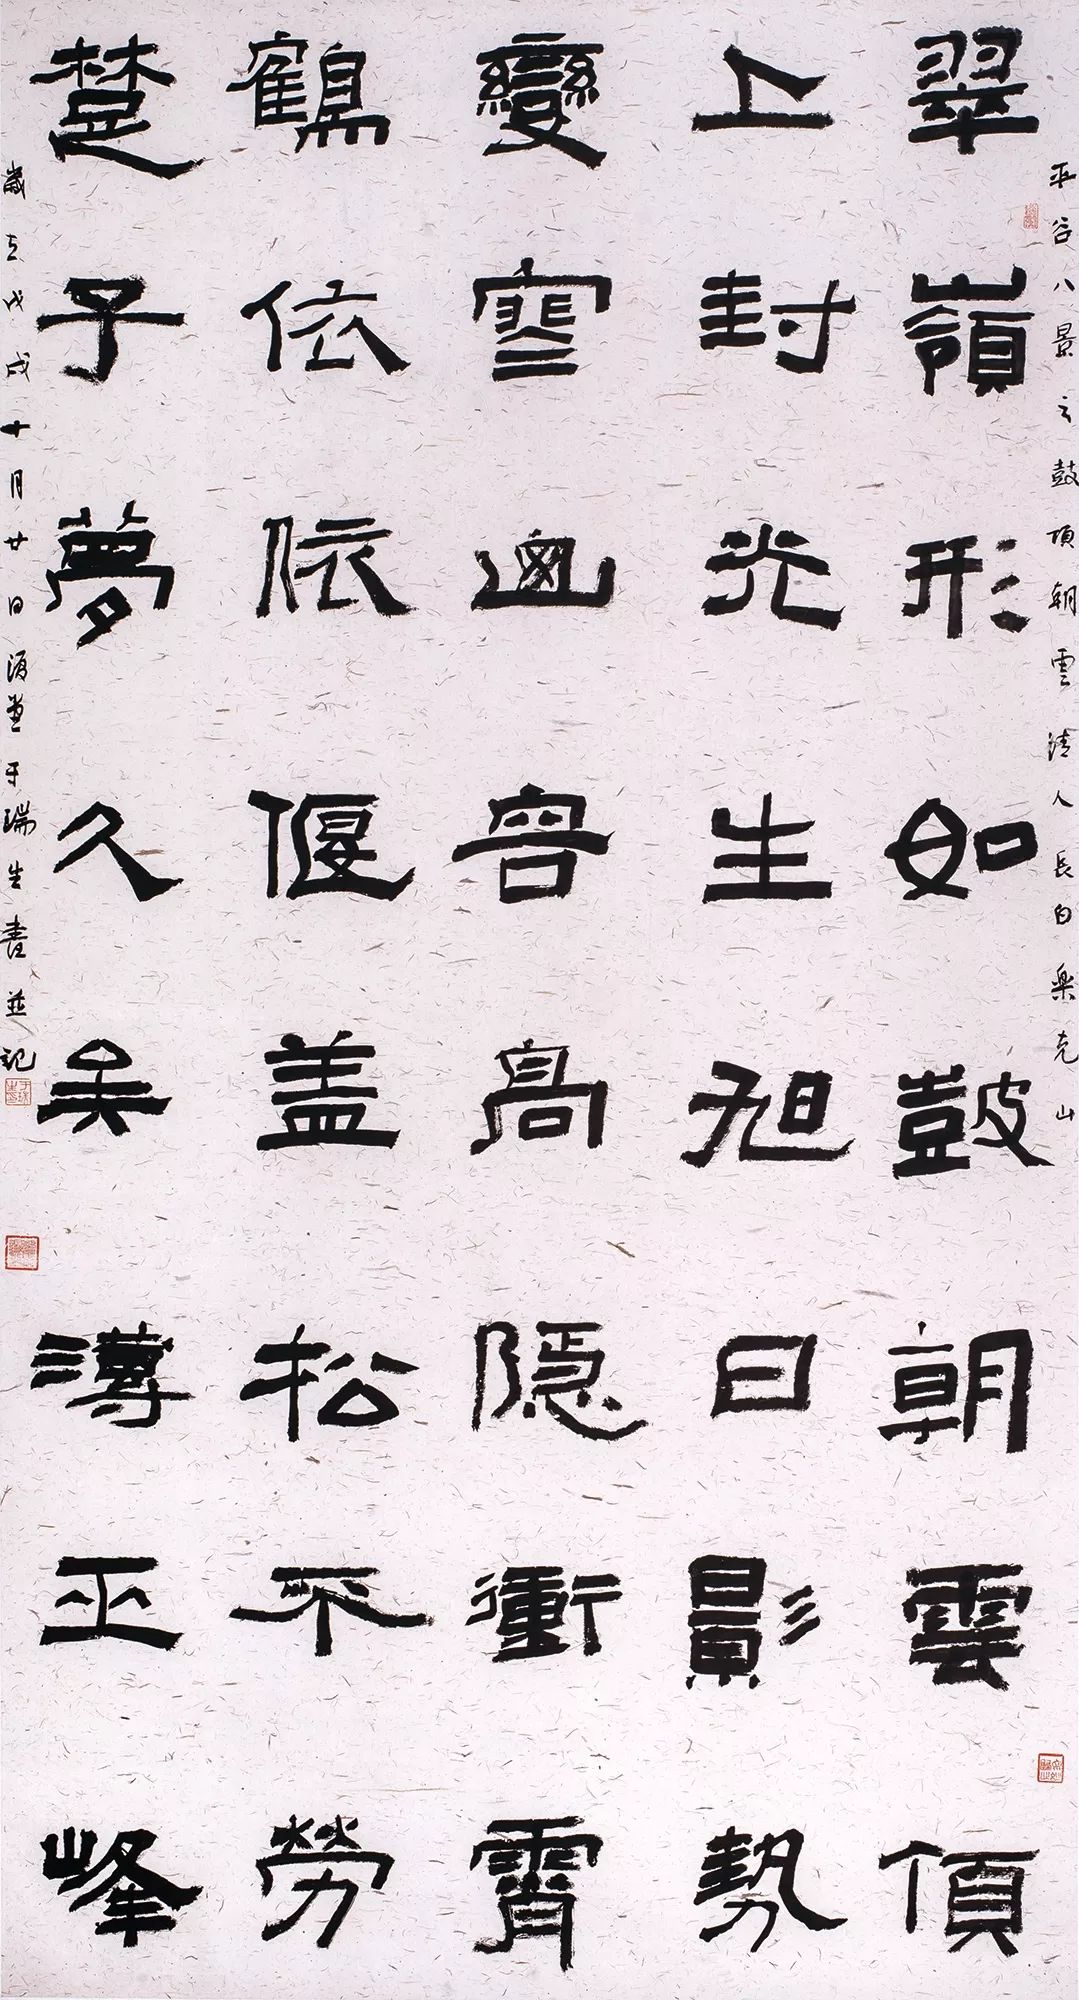 平谷八景之鼓頂朝雲清人長白樂克山
翠嶺形如鼓朝雲頂
上封光生旭日影勢
變寒容高隱衝霄
鶴依依偃盖松不勞
楚子夢久矣薄巫峰
歲在戊戌十月廿日于瑞生書並記